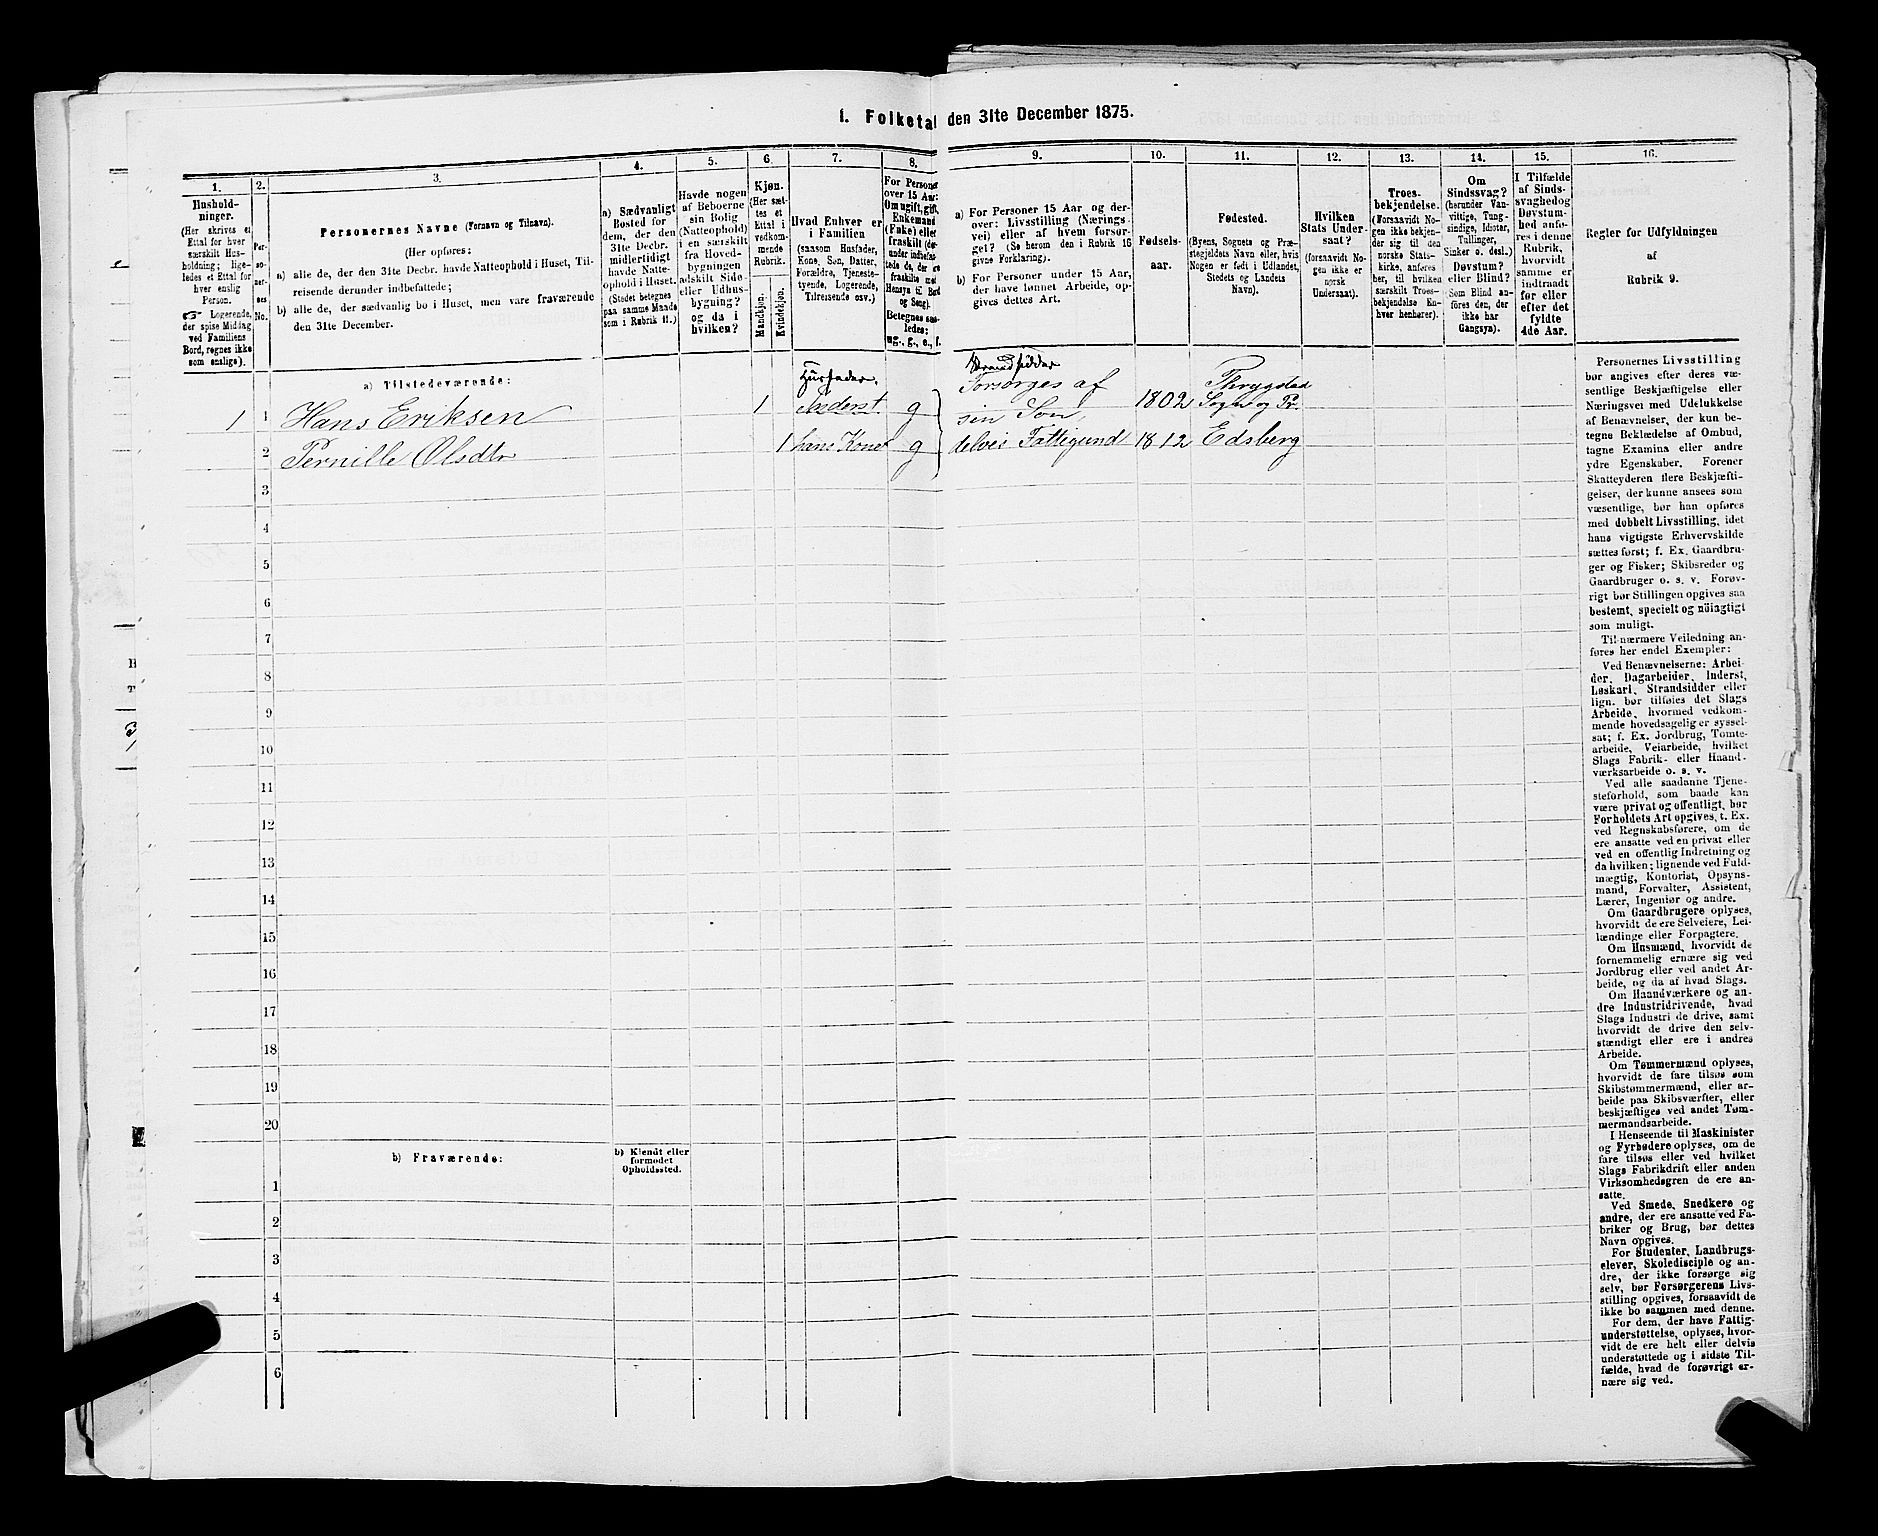 1. Folketal den 31te December 1875.
1.
2.
3.
4.
5.
6.
7.
8.
9.
10.
11.
12.
13.
14.
15.
16.
Hushold-
ninger.
(Her skrives et
Ettal for hver
særskilt Hus-
holdning; lige-
ledes et Ettal for
hver enslig
Person.
☞ Logerende,
der spise Middag
ved Familiens
Bord, regnes ikke
som enslige).
Per-
so-
ner-
nes
No.
Personernes Navne (Fornavn og Tilnavn).
(Her opføres:
a) alle de, der den 31te Decbr. havde Natteophold i Huset, Til-
reisende derunder indbefattede;
b) alle de, der sædvanlig bo i Huset, men vare fraværende
den 31te December.
a) Sædvanligt
Bosted for
dem, der den
31te Decbr.
midlertidigt
havde Natte-
ophold i Huset.
(Stedet betegnes
paa samme Maade
som i Rubrik 11.)
Havde nogen
af Beboerne
sin Bolig
(Natteophold)
i en særskilt
fra Hoved-
bygningen
adskilt Side-
eller Udhus-
bygning?
og da i
hvilken?
Kjøn.
(Her sæt-
tes et
Ettal i
vedkom-
mende
Rubrik.
Mandkjøn.
Kvindekjøn.
Hvad Enhver er
i Familien
(saasom Husfader,
Kone, Søn, Datter,
Forældre, Tjeneste-
tyende, Logerende,
Tilreisende osv.)
For Personer
over 15 Aar:
Om ugift, gift,
Enkemand
(Enke) eller
fraskilt (der-
under indbefat-
tede de, der ere
fraskilte med
Hensyn til Bord
og Seng).
Betegnes saa-
ledes:
ug., g., e., f.
a) For Personer 15 Aar og der-
over: Livsstilling (Nærings-
vei) eller af hvem forsør-
get? (Se herom den i Rubrik 16
givne Forklaring).
b) For Personer under 15 Aar,
der have lønnet Arbeide, op-
gives dettes Art.
Fødsels-
aar.
Fødested.
(Byens, Sognets og Præ-
stegjeldets Navn eller, hvis
Nogen er født i Udlandet,
Stedets og Landets
Navn).
Hvilken
Stats Under-
saat?
(forsaavidt No-
gen ikke er
norsk
Undersaat).
Troes-
bekjendelse.
(Forsaavidt No-
gen ikke bekjen-
der sig til den
norske Stats-
kirke, anføres
her, til hvilken
særskilt Troes-
bekjendelse En-
hver henhører).
Om
Sindssvag?
(herunder Van-
vittige, Tung-
sindige, Idioter,
Tullinger,
Sinker o. desl.)
Døvstum?
eller Blind?
(Som Blind an-
føres den, der
ikke har
Gangsyn).
I Tilfælde
af Sinds-
svaghedog
Døvstum-
hed anfø-
res i denne
Rubrik,
hvorvidt
samme er
indtraadt
før eller
efter det
fyldte
4de Aar.
Regler for Udfyldningen
af
Rubrik 9.
a) Tilstedeværende:
Husfader. Strandsidder
1 1 Hans Eriksen 1 Inderst g Forsørges af sin Søn, 1802 Thrygstad Sogn og Pr.
2 Pernille Olsdtr 1 hans Kone g delvis Fattigund 1812 Edsberg
3
4
5
6
7
8
9
10
11
12
13
14
15
16
17
18
19
20
b) Fraværende:
b) Kjendt eller
formodet
Opholdssted.
1
2
3
4
5
6
Personernes Livsstilling
bør angives efter deres væ-
sentlige Beskjæftigelse eller
Næringsvei med Udelukkelse
af Benævnelser, der kun be-
tegne Beklædelse af Ombud,
tagne Examina eller andre
ydre Egenskaber. Forener
Skatteyderen flere Beskjæfti-
gelser, der kunne ansees som
væsentlige, bør han opføres
med dobbelt Livsstilling, idet
hans vigtigste Erhvervskilde
sættes først; f. Ex. Gaardbru-
ger og Fisker; Skibsreder og
Gaardbruger o. s. v. Forøv-
rigt bør Stillingen opgives saa
bestemt, specielt og nöiagtigt
som muligt.
Til nærmere Veiledning an-
føres her endel Exempler:
Ved Benævnelserne: Arbei-
der, Dagarbeider, Inderst,
Løskarl, Strandsidder eller
lign. bør tilføies det Slags
Arbeide, hvormed vedkom-
mende hovedsagelig er syssel-
sat; f. Ex. Jordbrug, Tomte-
arbeide, Veiarbeide, hvilket
Slags Fabrik- eller Haand-
værksarbeide o. s. v.
Ved alle saadanne Tjene-
steforhold, som baade kan
være privat og offentligt, bør
Forholdets Art opgives, t. Ex.
ved Regnskabsførere, om de
ere ansatte ved en privat eller
ved en offentlig Indretning og
da hvilken; lignende ved Fuld-
mægtig, Kontorist, Opsyns-
mand, Forvalter, Assistent,
Lærer, Ingeniør og andre.
Om Gaardbrugere oplyses,
hvorvidt de ere Selveiere, Lei-
lændinge eller Forpagtere.
Om Husmænd, hvorvidt de
fornemmelig ernære sig ved
Jordbrug eller ved andet Ar-
beide, og da af hvad Slags.
Om Haandværkere og an-
dre Industridrivende, hvad
Slags Industri de drive, samt
hvorvidt de drive den selv-
stændigt eller ere i andres
Arbeide.
Om Tømmermænd oplyses,
hvorvidt de fare tilsøs som
Skibstømmermænd, eller ar-
beide paa Skibsværfter, eller
beskjæftiges ved andet Tøm-
mermandsarbeide.
I Henseende til Maskinister
og Fyrbødere oplyses, om de
fare tilsøs eller ved hvilket
Slags Fabrikdrift eller anden
Virksomhedsgren de ere an-
satte.
Ved Smede, Snedkere og
andre, der ere ansatte ved Fa-
briker og Brug, bør dettes
Navn opgives.
For Studenter, Landbrugs-
elever, Skoledisciple og an-
dre, der ikke forsørge sig
selv, bør Forsørgerens Livs-
stilling opgives, forsaavidt de
ikke bo sammen med denne.
For dem, der have Fattig-
understøttelse, oplyses, hvor-
vidt de ere helt eller delvis
understøttede og i sidste Til-
fælde, hvad de forøvrigt er-
nære sig ved.